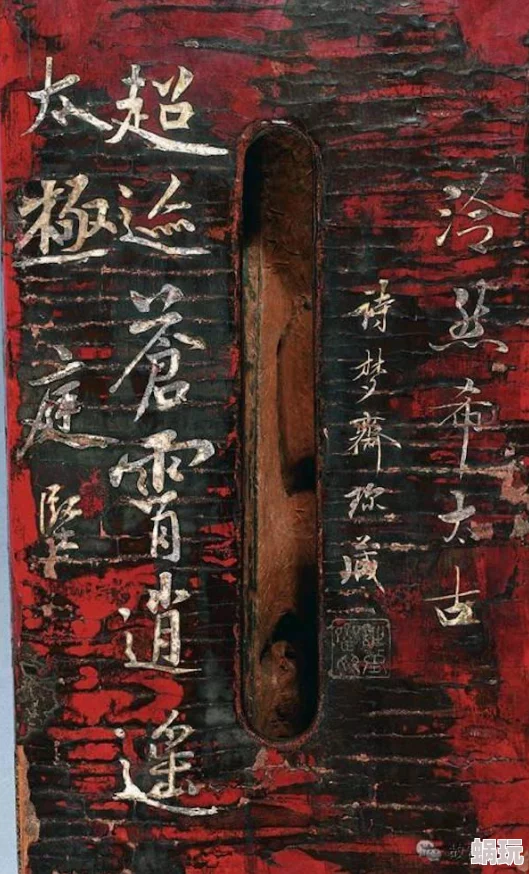 泠然希太古
诗梦斋珎藏
超迹苍霄逍遥
太極
庭坚
蝸玩